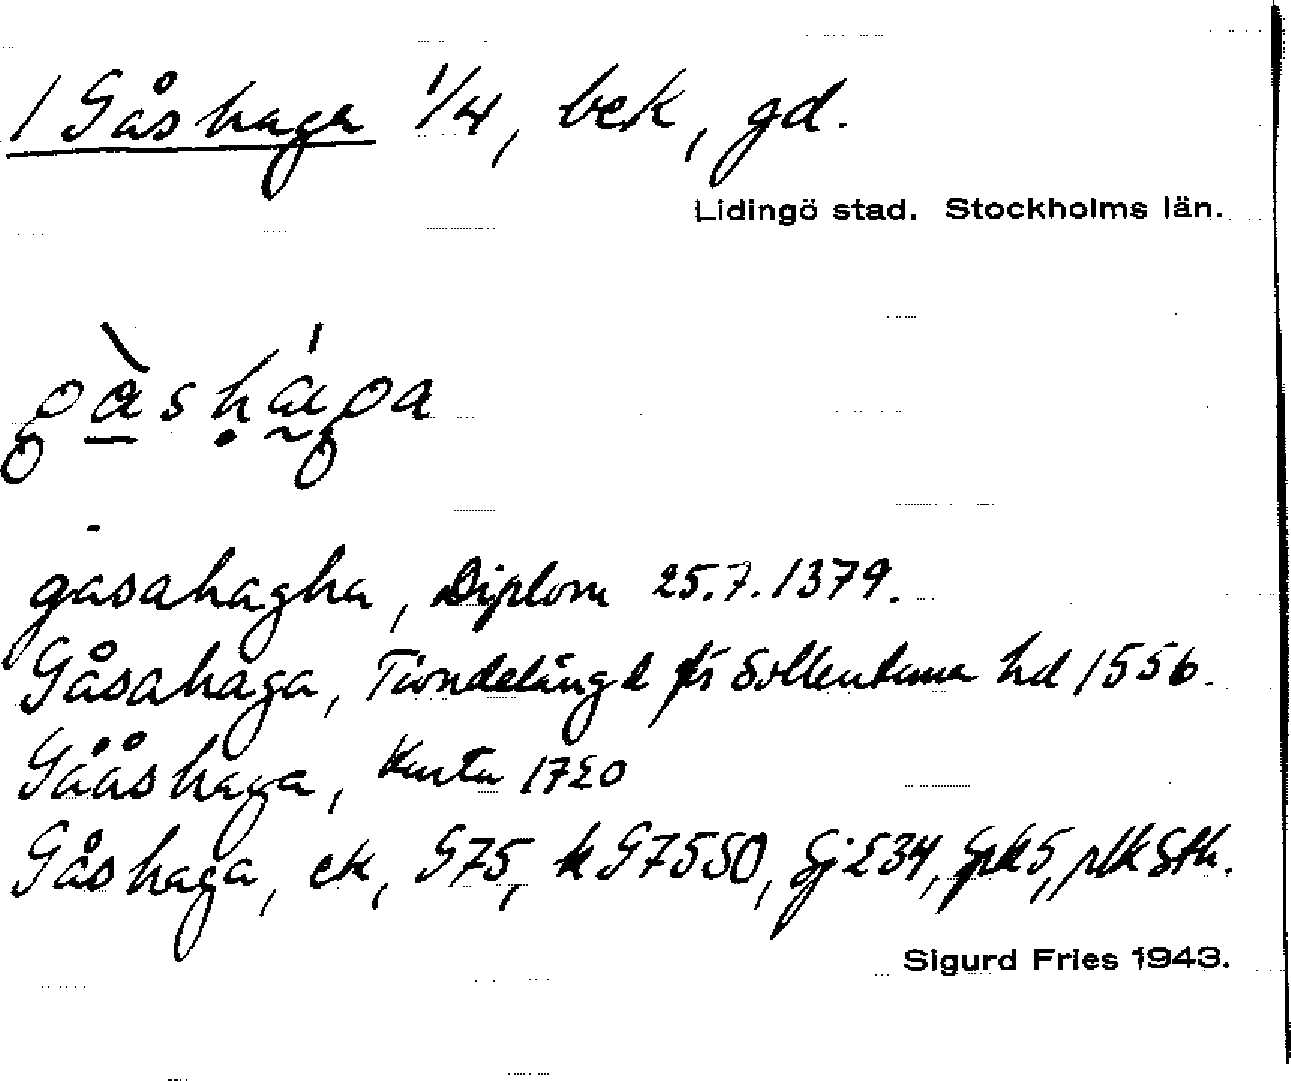 1 Gåshaga 1/4, bek, gd.
Lidingö stad. Stockholms län.
gasahagha, Diplom 25.7.1379.
Gåsahaga, Tiondelängd fr Sollentuna hd 1556.
Gååshaga, Karta 1720
Gåshaga, ek, G75, k G7550, Gj234, jrk5, plk Sth.
Sigurd Fries 1943.